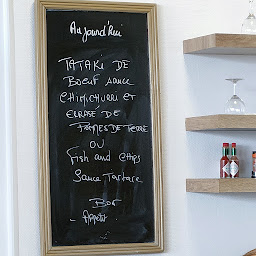 Aujourd'hui
TATAKI DE
BOEUF SAUCE
CHIMICHURRI ET
ECRASÉ DE
POMMES DE TERRE
OU
FISH AND CHIPS
SAUCE TARTARE
BON
Appétit